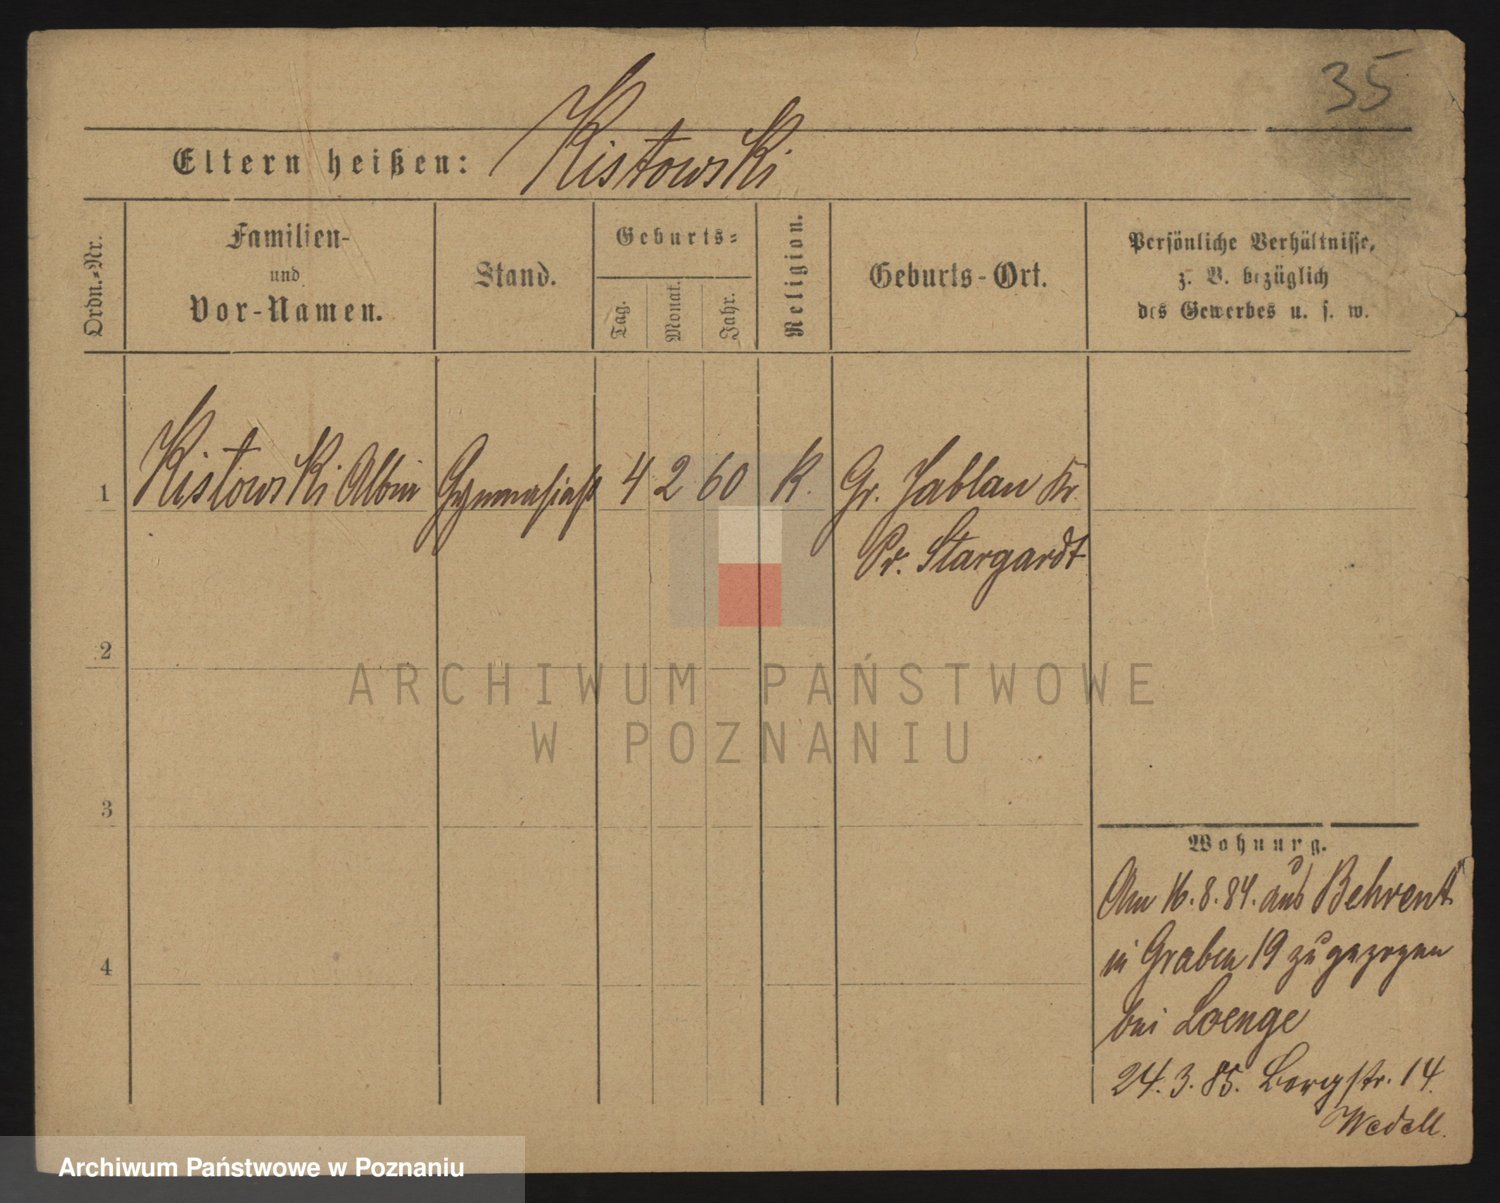 35
Eltern heißen: Kistowski
Ordn.-Nr.
Familien-
und
Vor-Namen.
Stand.
Geburts-
Tag.
Monat.
Jahr.
Religion.
Geburts-Ort.
Persönliche Verhältnisse,
z. B. bezüglich
des Gewerbes u. s. w.
1 Kistowski Albin Gymnasiast 4 2 60 K. Gr. Jablau Kr.
Pr. Stargardt
2
3
4
Wohnung.
Am 16.8.84. aus Behrent
in Graben 19 zugezogen
bei Loenge
24.3.85. Bergstr. 14.
Wedell.
ARCHIWUM PAŃSTWOWE
W POZNANIU
Archiwum Państwowe w Poznaniu